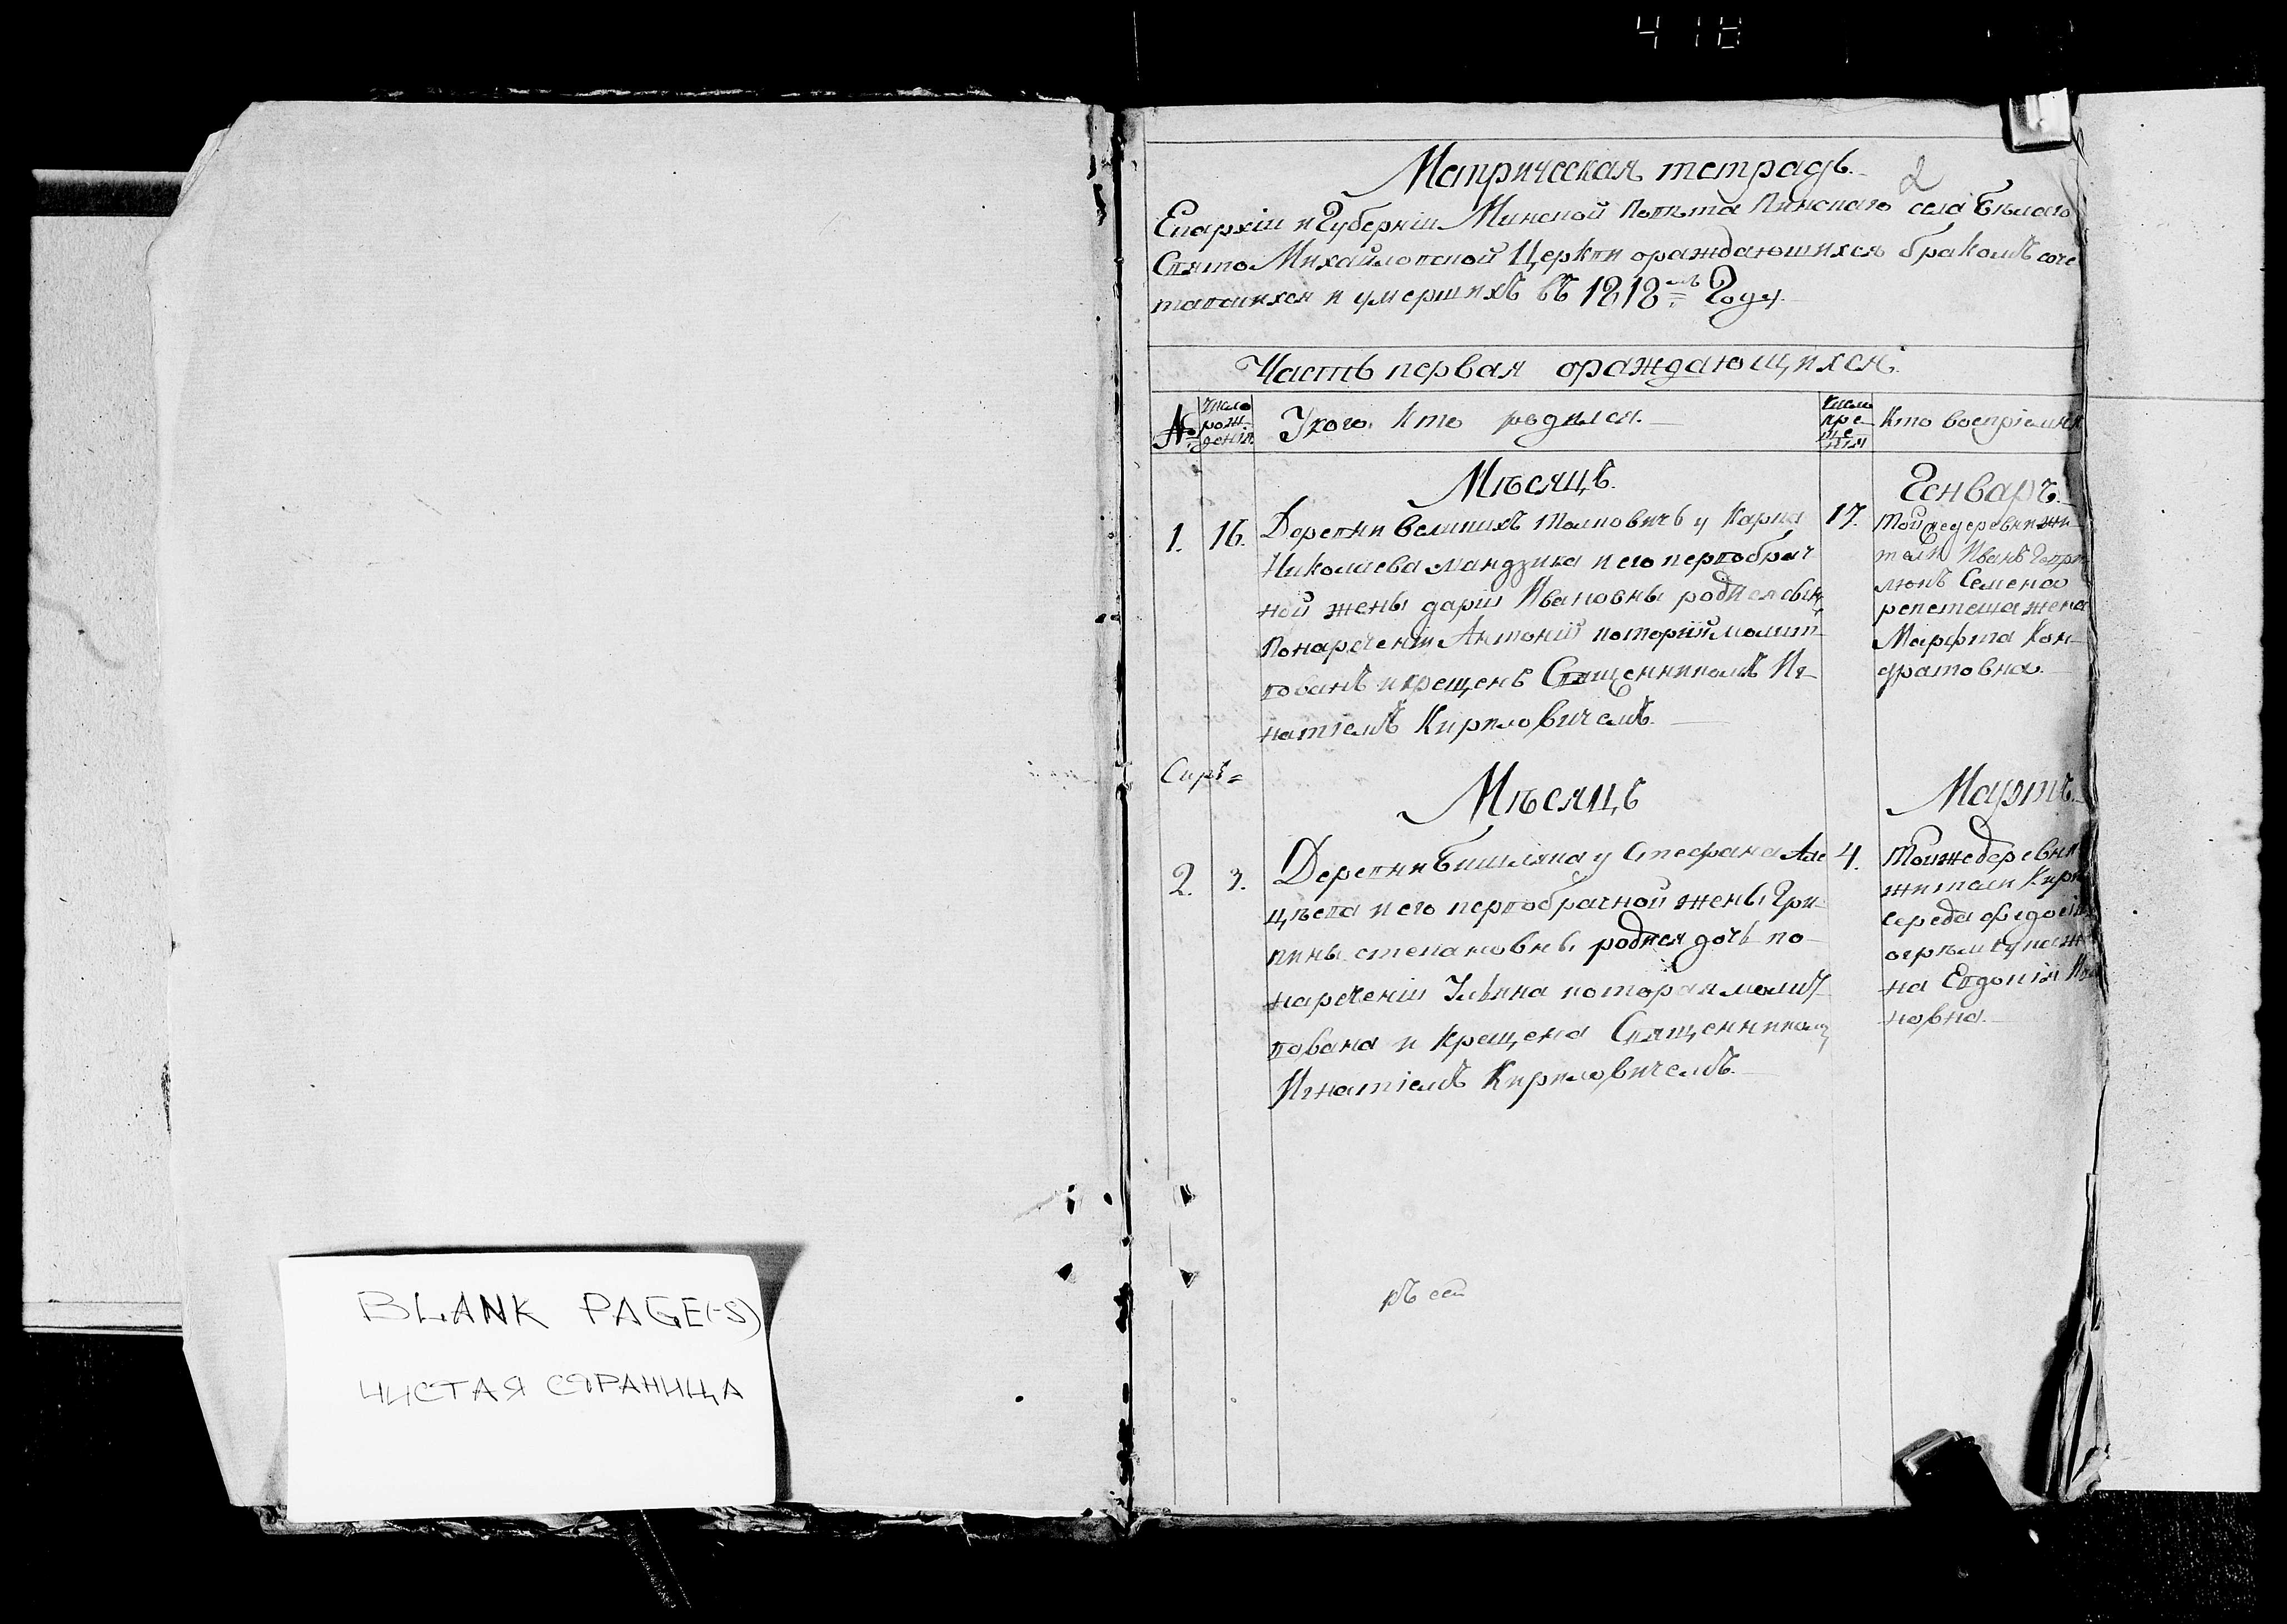 418
Метрическая тетрадь.
2
Епархіи и Губерніи Минской Повѣта Пинскаго села Бѣлаго
Свято Михайловской Церкви ораждающихся бракомъ соче
тавшихся и умершихъ въ 1818мъ Году.
Часть первая ораждающихся.
№
Число рож-деніи
У кого кто родился.
Число кре-ще-нія
Кто воспріемни
Мѣсяцъ.
Генварь.
1.
16.
Деревни Великихъ у Карпа
Николаева мандзика и его первобрач
ной жены даріи Ивановны родился сынъ
понаречении Антоній которій молит-
вованъ и крещенъ Священникомъ Иг-
натіемъ Кириловичемъ.
17.
Той же деревни жи-
тели Иванъ
Семена
жена
Марфта Кон-
дратовна.
Мѣсяцъ
Мартъ.
2.
3.
Деревни у Стефана Але
цѣва и его первобрачной жены Гри-
пины степановны родися дочь по-
нареченіи Ульяна которая молит-
вована и Крещена Священником
Игнатіемъ Кириловичемъ.
4.
Тойже деревни
жители
середа
на Евдокия
новна.
BLANK PAGE(-S)
ЧИСТАЯ СТРАНИЦА